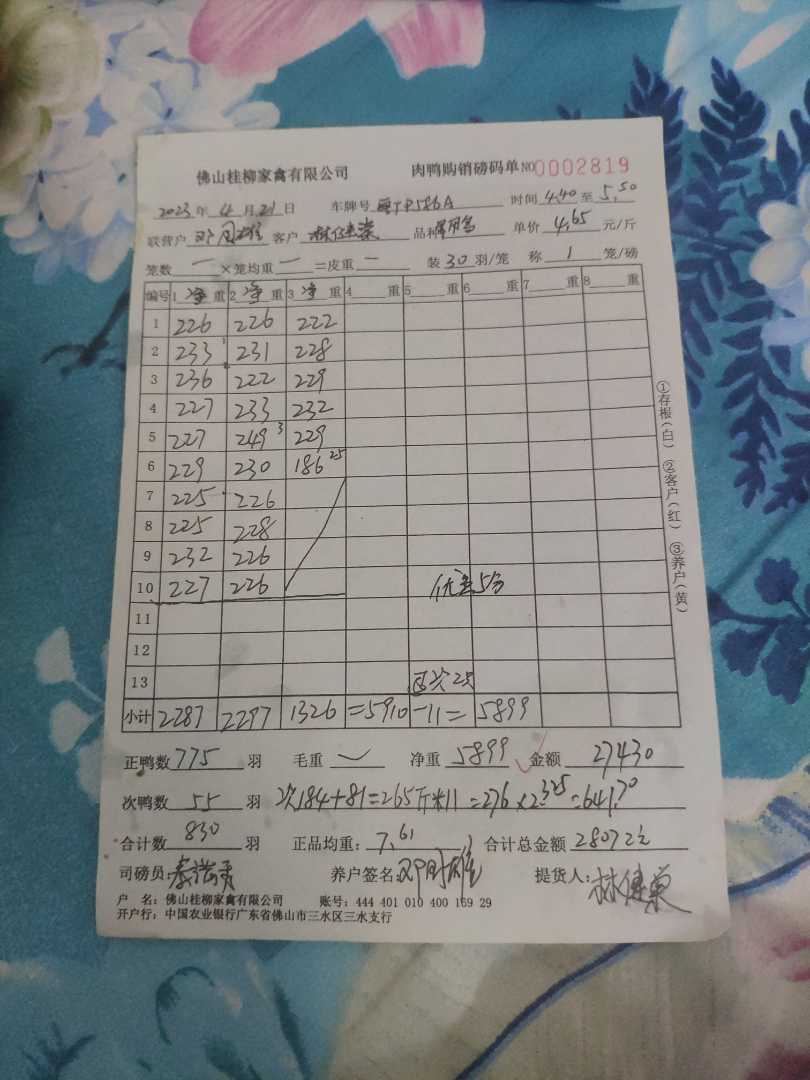 佛山桂柳家禽有限公司 肉鸭购销磅码单 NO 0002819
2023年 4月 21日 车牌号 时间 4.40 至 5.50
联营户 邓 雄 客户 林健 品种 单价 4.65 元/斤
笼数 一 ×笼均重 一 =皮重 一 装 30 羽/笼 称 1 笼/磅
编号 1 净 重 2 净 重 3 净 重 4 重 5 重 6 重 7 重 8 重
1 226 226 222
2 233 231 228
3 236 222 229
4 227 233 232
5 227 249 3 229
6 229 230 186 25
7 225 226
8 225 228
9 232 226
10 227 226 优 5
11
12
13 次
小计 2287 2297 1326 =5910 -11= 5899
①存根(白) ②客户(红) ③养户(黄)
正鸭数 775 羽 毛重 净重 5899 金额 27430
次鸭数 55 羽 次184+81=265斤+11=276×2.325=641.70
合计数 830 羽 正品均重: 7.61 合计总金额 28072
司磅员: 养户签名: 邓 雄 提货人: 林健
户 名: 佛山桂柳家禽有限公司 账号: 444 401 010 400 169 29
开户行: 中国农业银行广东省佛山市三水区三水支行